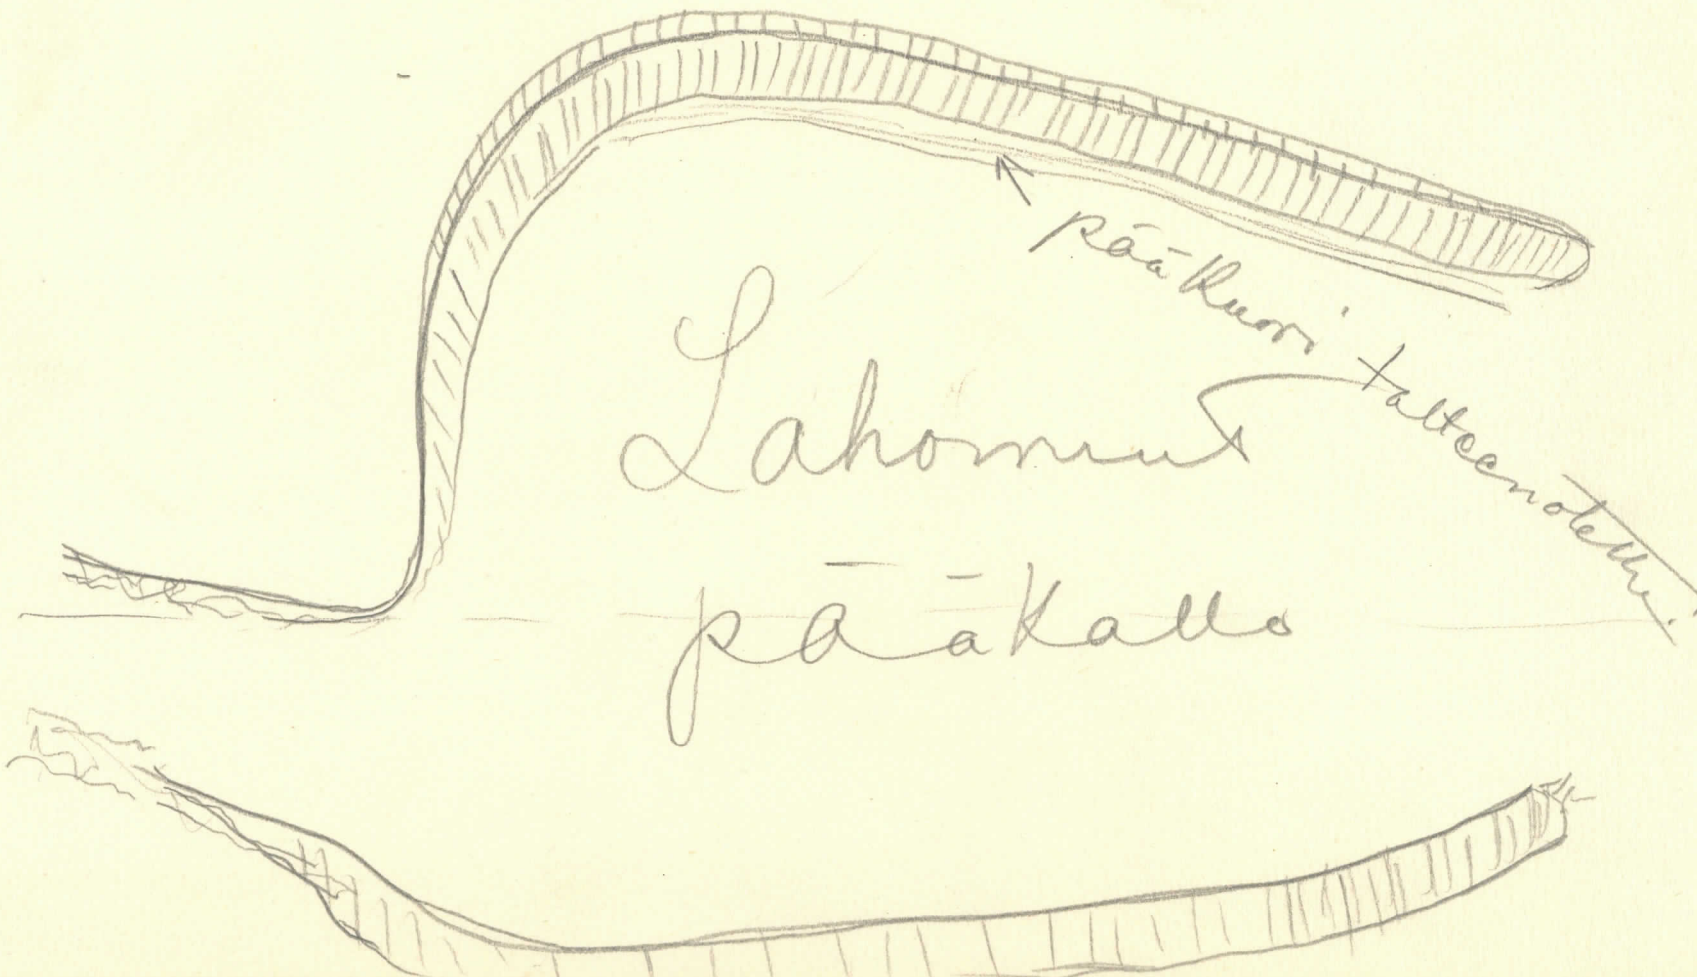 pääkuori talteenotettu.
Lahonnut
pääkallo